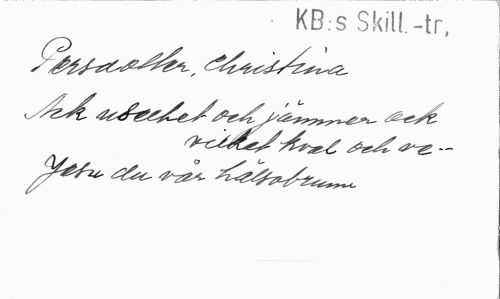 KB:s Skill.-tr,
Persdotter, Christina
Ack uselhet och jämmer ack
vilket kval och ve--
Jesu du vår hälsobrunn